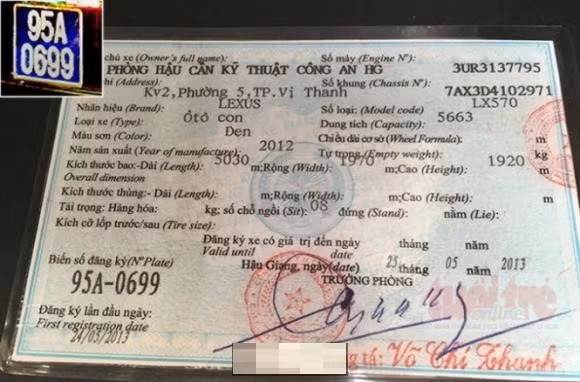 95A
0699
chủ xe (Owner's full name): Số máy (Engine Nº):
PHÒNG HẬU CẦN KỸ THUẬT CÔNG AN HG 3UR3137795
chỉ (Address): Số khung (Chassis Nº):
Kv2, Phường 5, TP. Vị Thanh 7AX3D4102971
Nhãn hiệu (Brand): LEXUS Số loại: (Model code) LX570
Loại xe (Type): Ôtô con Dung tích (Capacity): 5663
Màu sơn (Color): Đen Chiều dài cơ sở (Wheel Formula): m
Năm sản xuất (Year of manufacture): 2012 Tự trọng (Empty weight): kg
Kích thước bao:- Dài (Length): 5030 m;Rộng (Width): 1970 m;Cao (Height): 1920 m
Overall dimension
Kích thước thùng:- Dài (Length): m;Rộng (Width): m;Cao (Height): m
Tải trọng: Hàng hóa: kg; số chỗ ngồi (Sit): 08 đứng (Stand): nằm (Lie):
Kích cỡ lốp trước/sau (Tire size):
Đăng ký xe có giá trị đến ngày tháng năm
Valid until date
Biển số đăng ký (NºPlate) Hậu Giang, ngày(date) 25 tháng 05 năm 2013
95A-0699 TRƯỞNG PHÒNG
Đăng ký lần đầu ngày:
First registration date
24/05/2013
tá: Võ Chí Thanh